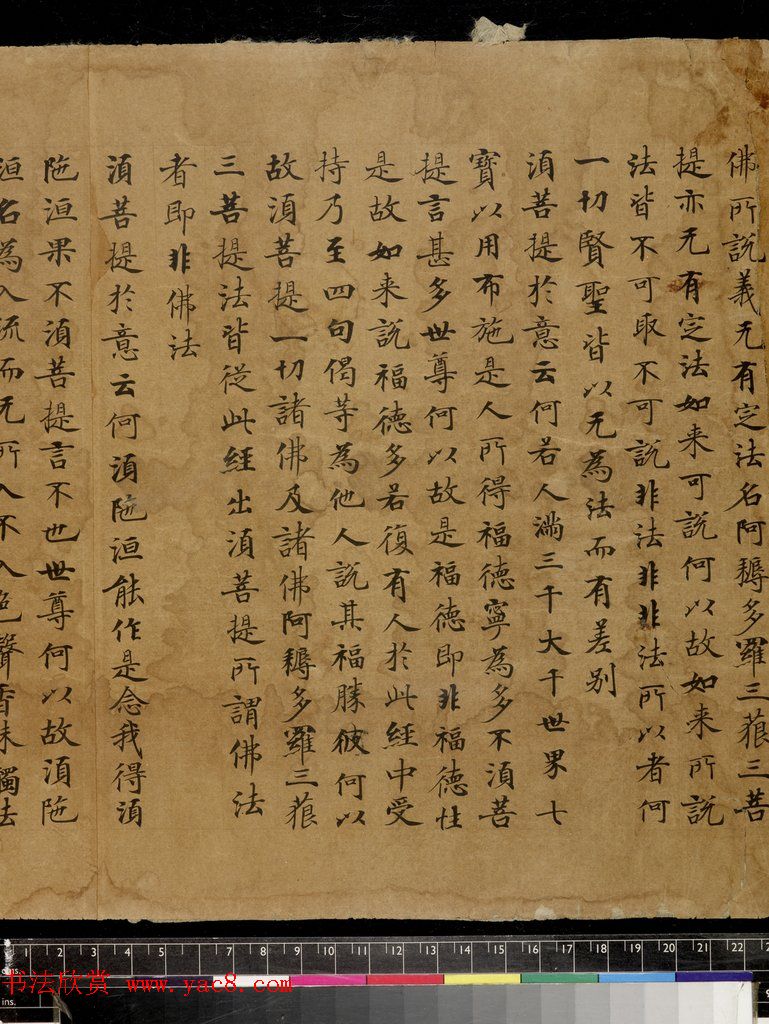 佛所說義无有定法名阿耨多羅三藐三菩
提亦无有定法如来可說何以故如来所說
法皆不可取不可說非法非非法所以者何
一切賢聖皆以无為法而有差别
湏菩提於意云何若人滿三千大千世界七
寶以用布施是人所得福德寧為多不湏菩
提言甚多世尊何以故是福德即非福德性
是故如来說福德多若復有人於此經中受
持乃至四句偈等為他人說其福勝彼何以
故湏菩提一切諸佛及諸佛阿耨多羅三藐
三菩提法皆從此經出湏菩提所謂佛法
者即非佛法
湏菩提於意云何湏陁洹能作是念我得湏
陁洹果不湏菩提言不也世尊何以故湏陁
洹名為入流而无所入不入色聲香味觸法
cms. 1 2 3 4 5 7 8 9 10 11 12 13 14 15 16 17 18 19 20 21 22
书法欣赏 www.yac8.com
ins.